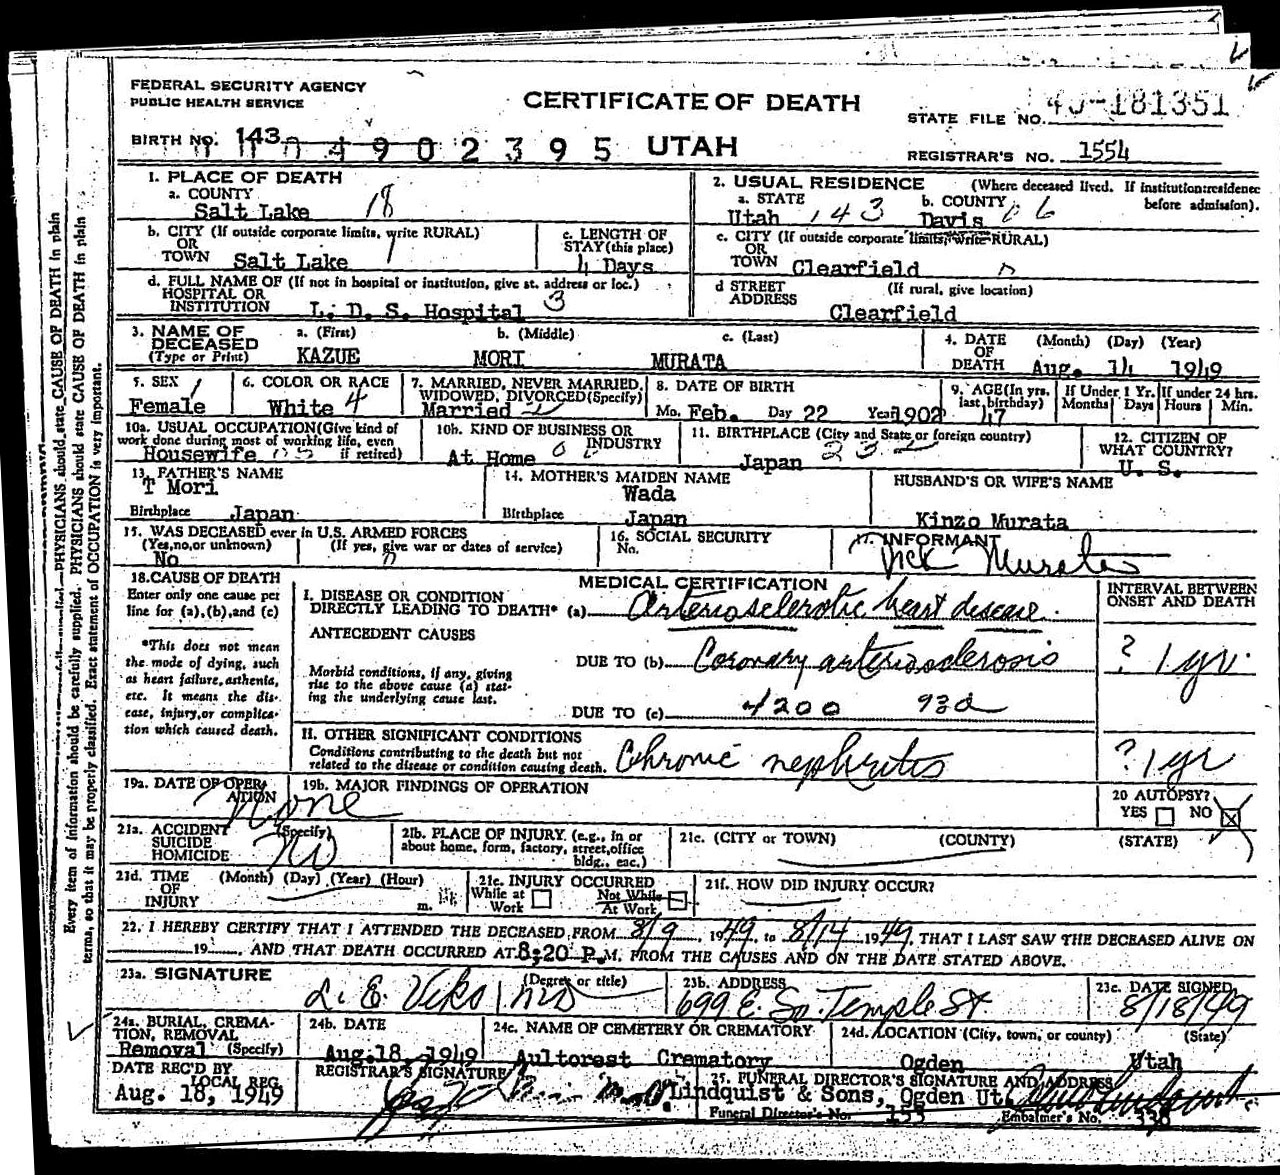 FEDERAL SECURITY AGENCY
PUBLIC HEALTH SERVICE
CERTIFICATE OF DEATH
STATE FILE NO. 181351
BIRTH NO. 143
04902395 UTAH
REGISTRAR'S NO. 1554
1. PLACE OF DEATH
a. COUNTY
Salt Lake 18
2. USUAL RESIDENCE (Where deceased lived. If institution:residence before admission).
a. STATE
Utah 143
b. COUNTY
Davis 06
b. CITY (If outside corporate limits, write RURAL)
OR
TOWN Salt Lake 1
c. LENGTH OF
STAY (this place)
4 Days
c. CITY (If outside corporate limits, write RURAL)
OR
TOWN Clearfield
d. FULL NAME OF (If not in hospital or institution, give st. address or loc.)
HOSPITAL OR
INSTITUTION L. D. S. Hospital 3
d STREET (If rural, give location)
ADDRESS
Clearfield
3. NAME OF DECEASED
(Type or Print)
a. (First) b. (Middle) c. (Last)
KAZUE MORI MURATA
4. DATE (Month) (Day) (Year)
OF
DEATH Aug. 14 1949
5. SEX 1
Female
6. COLOR OR RACE
White 4
7. MARRIED, NEVER MARRIED,
WIDOWED, DIVORCED(Specify)
Married
8. DATE OF BIRTH
Mo. Feb. Day 22 Year 1902
9. AGE (In yrs. last birthday)
47
If Under 1 Yr. If under 24 hrs.
Months Days Hours Min.
10a. USUAL OCCUPATION(Give kind of
work done during most of working life, even
if retired)
Housewife
10b. KIND OF BUSINESS OR
INDUSTRY
At Home
11. BIRTHPLACE (City and State or foreign country)
Japan
12. CITIZEN OF
WHAT COUNTRY?
U. S.
13. FATHER'S NAME
T Mori
Birthplace Japan
14. MOTHER'S MAIDEN NAME
Wada
Birthplace Japan
HUSBAND'S OR WIFE'S NAME
Kinzo Murata
15. WAS DECEASED ever in U.S. ARMED FORCES
(Yes,no,or unknown) (If yes, give war or dates of service)
No
16. SOCIAL SECURITY
No.
17. INFORMANT
Murata
18. CAUSE OF DEATH
Enter only one cause per
line for (a),(b),and (c)
*This does not mean
the mode of dying, such
as heart failure, asthenia,
etc. It means the dis-
ease, injury, or complica-
tion which caused death.
MEDICAL CERTIFICATION
INTERVAL BETWEEN
ONSET AND DEATH
I. DISEASE OR CONDITION
DIRECTLY LEADING TO DEATH* (a) Arteriosclerotic heart disease.
ANTECEDENT CAUSES
Morbid conditions, if any, giving
rise to the above cause (a) stat-
ing the underlying cause last.
DUE TO (b) Coronary arteriosclerosis ? 1 yr.
DUE TO (c) 4200 93d
II. OTHER SIGNIFICANT CONDITIONS
Conditions contributing to the death but not
related to the disease or condition causing death. Chronic nephritis ? 1 yr
19a. DATE OF OPER-
ATION
None
19b. MAJOR FINDINGS OF OPERATION
20 AUTOPSY?
YES NO
21a. ACCIDENT (Specify)
SUICIDE
HOMICIDE No
21b. PLACE OF INJURY. (e.g., in or
about home, form, factory, street,office
bldg., eac.)
21c. (CITY or TOWN) (COUNTY) (STATE)
21d. TIME (Month) (Day) (Year) (Hour)
OF
INJURY m.
21e. INJURY OCCURRED
While at Work Not While At Work
21f. HOW DID INJURY OCCUR?
22. I HEREBY CERTIFY THAT I ATTENDED THE DECEASED FROM 8/9, 1949, to 8/14 1949, THAT I LAST SAW THE DECEASED ALIVE ON
19 , AND THAT DEATH OCCURRED AT 8;20 P.M. FROM THE CAUSES AND ON THE DATE STATED ABOVE.
23a. SIGNATURE (Degree or title)
L. E. Viko MD
23b. ADDRESS
699 E. So. Temple St
23c. DATE SIGNED
8/18/49
24a. BURIAL, CREMA-
TION, REMOVAL
Removal (Specify)
24b. DATE
Aug.18, 1949
24c. NAME OF CEMETERY OR CREMATORY
Aultorest Crematory
24d. LOCATION (City, town, or county) (State)
Ogden Utah
DATE REC'D BY
LOCAL REG.
Aug. 18, 1949
REGISTRAR'S SIGNATURE
25. FUNERAL DIRECTOR'S SIGNATURE AND ADDRESS
Lindquist & Sons, Ogden Ut
Funeral Director's No. 153
Embalmer's No. 338
Every item of information should be carefully supplied. PHYSICIANS should state CAUSE OF DEATH in plain
terms, so that it may be properly classified. Exact statement of OCCUPATION is very important.